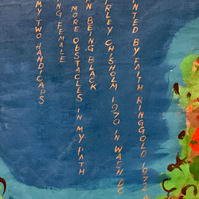 MY TWO HANDICAPS
NG FEMALE
MORE OBSTACLES IN MY PATH
N BEING BLACK
RLEY CHISHOLM 1970 IN WASH DC
NTED BY FAITH RINGGOLD 1972